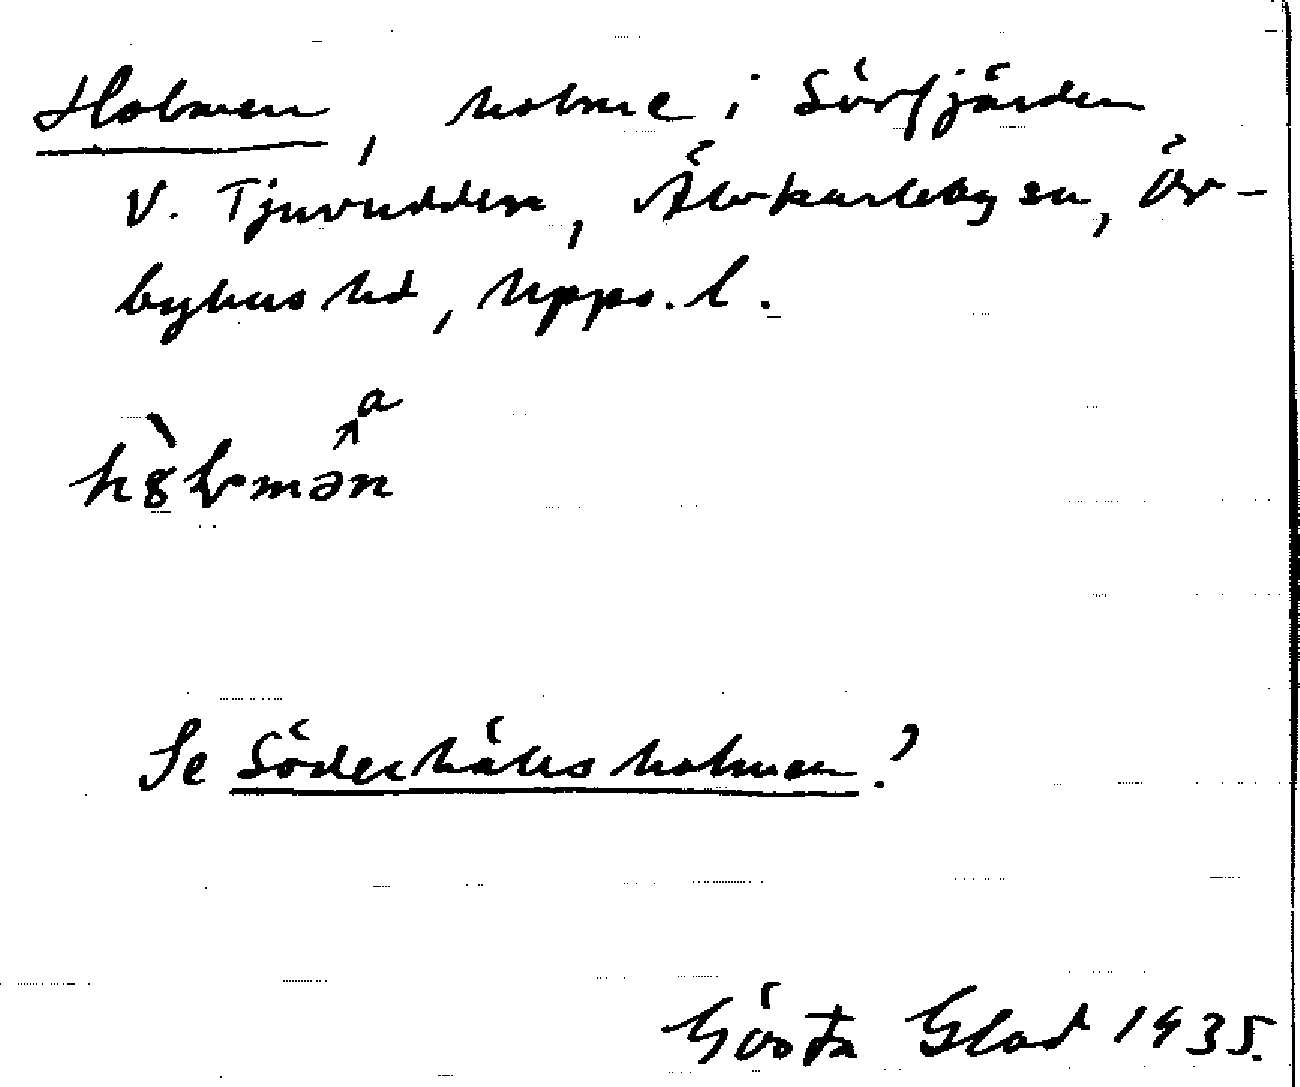 Holmen, holme i Sörfjärden
V. Tjuvudden, Älvkarleby sn, Ör-
byhus hd, Upps. l.
a
hòlmən
Se Söderhälls holmen?
Gösta Glad 1935.